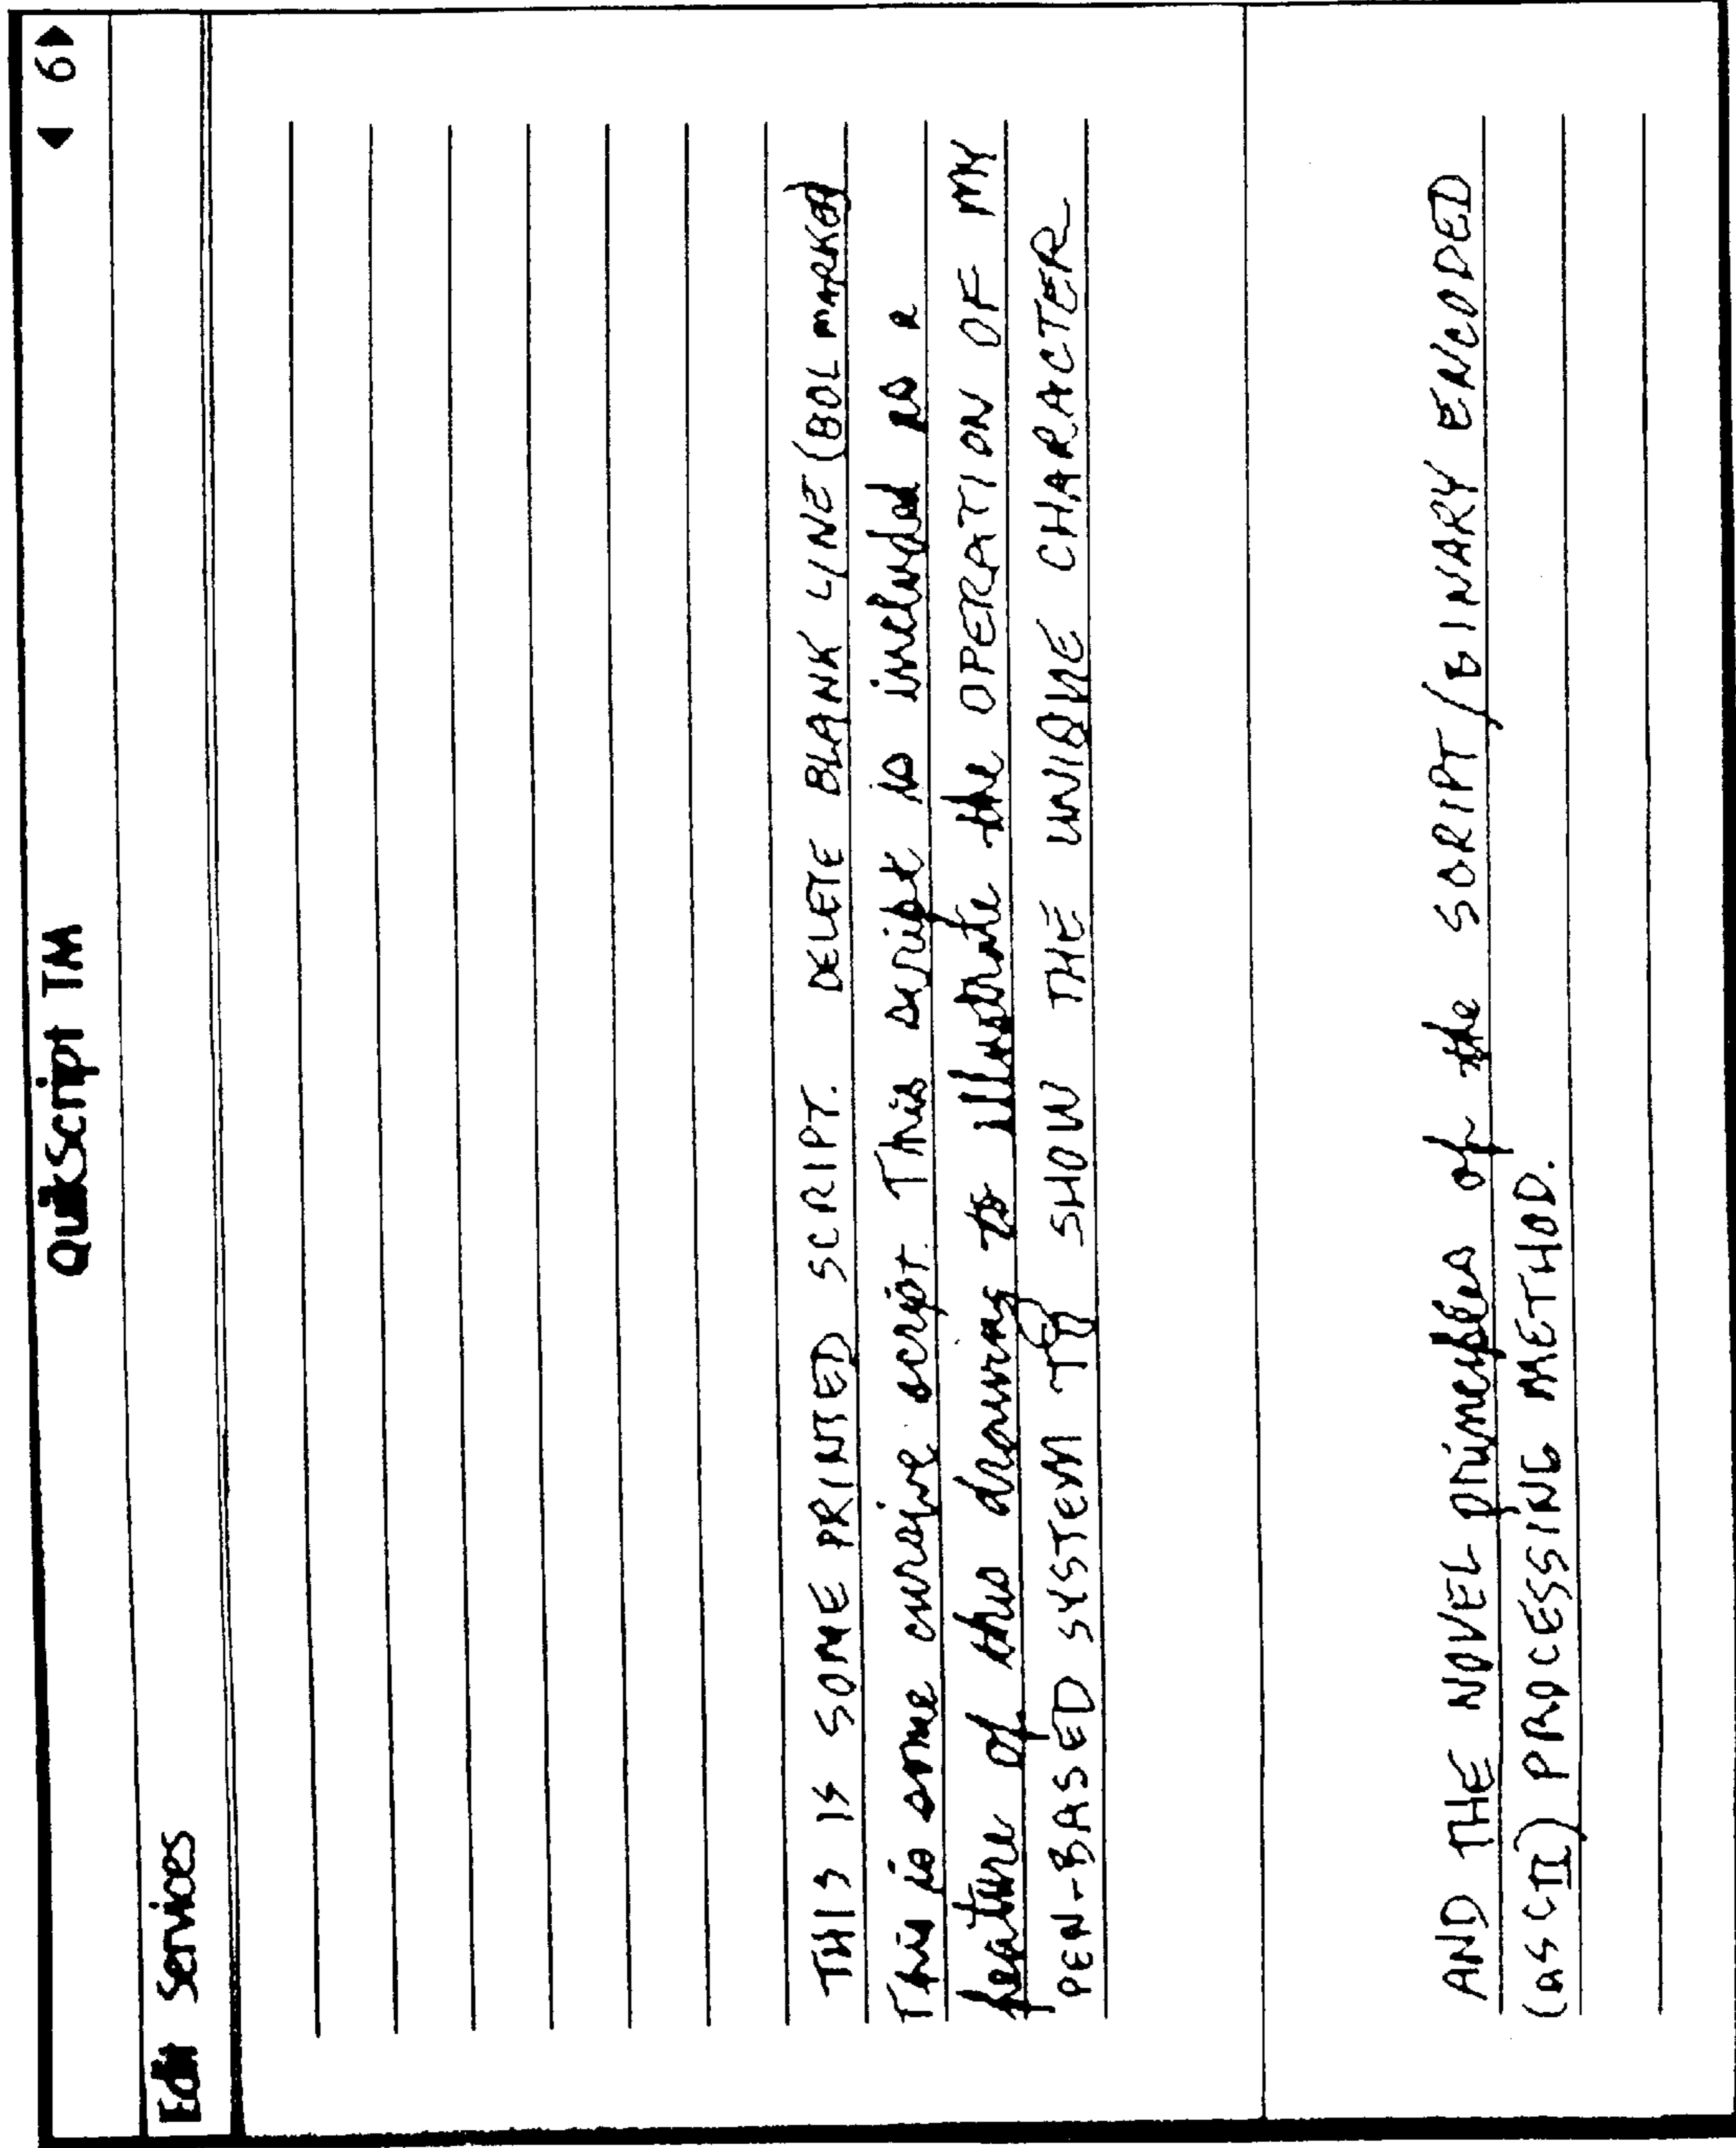 QuikScript TM
◀ 6▶
Edit Services
THIS IS SOME PRINTED SCRIPT. DELETE BLANK LINE (BOL MARKED)
This is some cursive script. This script is included as a
feature of this drawing to illustrate the OPERATION OF MY
PEN-BASED SYSTEM TO SHOW THE UNIQUE CHARACTER
AND THE NOVEL principles of the SCRIPT/BINARY ENCODED
(ASCII) PROCESSING METHOD.